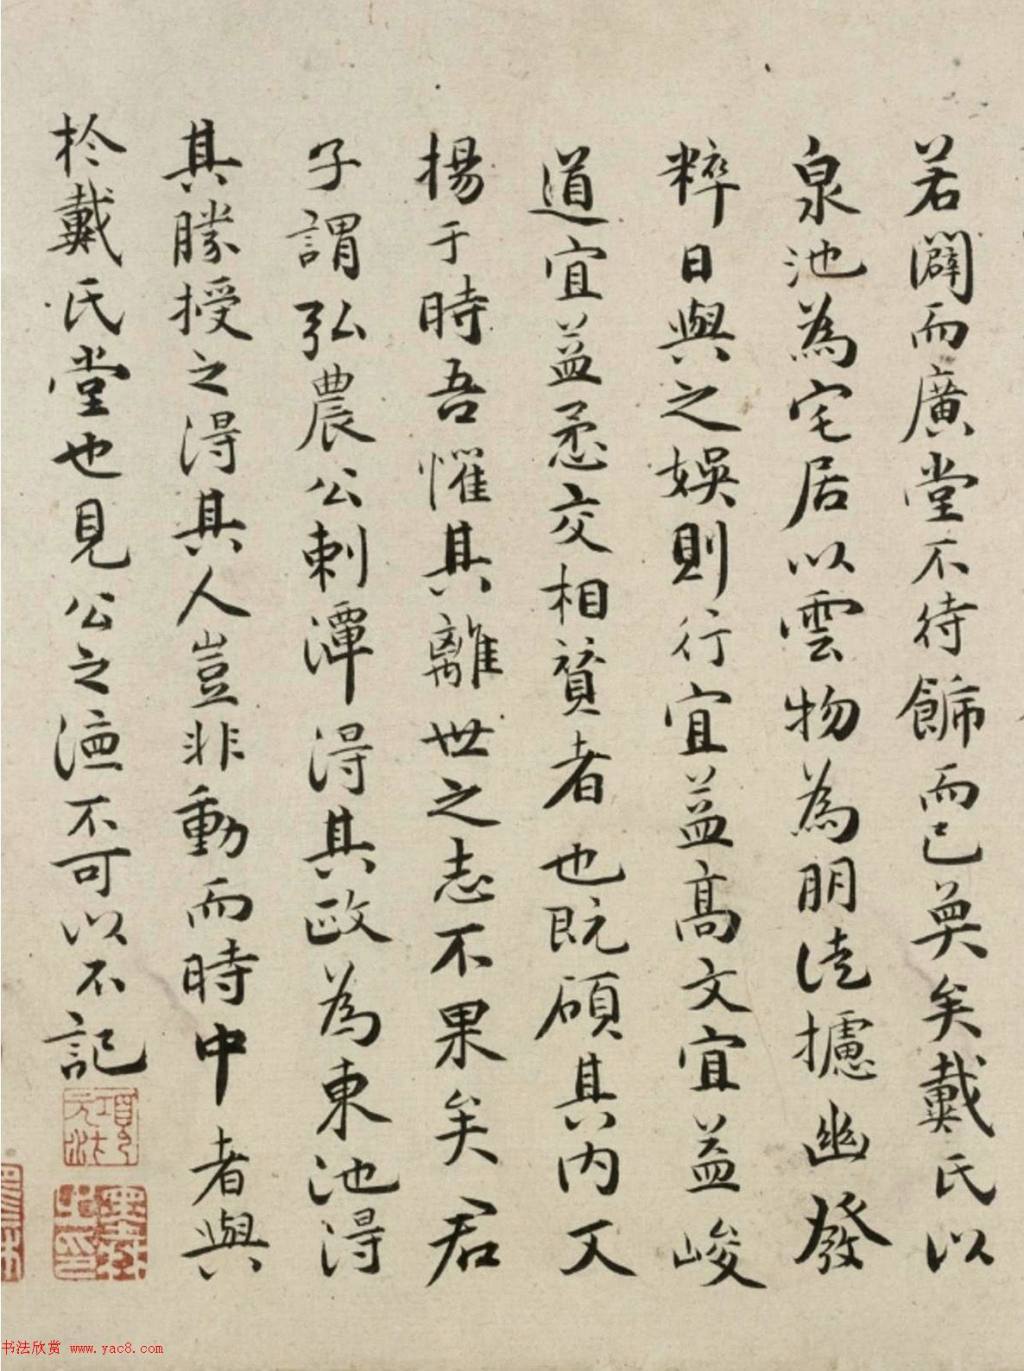 若闢而廣堂不待餙而已奐矣戴氏以
泉池為宅居以雲物為朋徒攄幽發
粹日與之娛則行宜益高文宜益峻
道宜益懋交相贊者也既碩其内又
揚于時吾懼其離世之志不果矣君
子謂弘農公刺潭得其政為東池得
其勝授之得其人豈非動而時中者與
於戴氏堂也見公之德不可以不記
书法欣赏 www.yac8.com